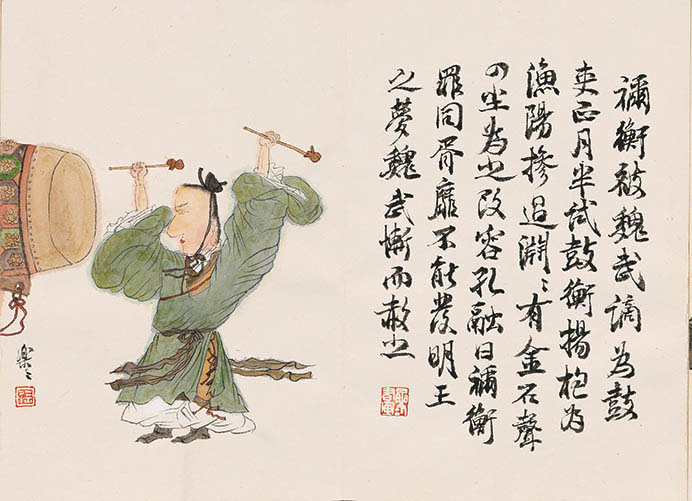 禰衡被魏武謫為鼓
吏正月半試鼓衡揚枹為
漁陽摻檛淵〻有金石聲
四坐為之改容孔融曰禰衡
罪同胥靡不能發明王
之夢魏武慚而赦之
樂〻